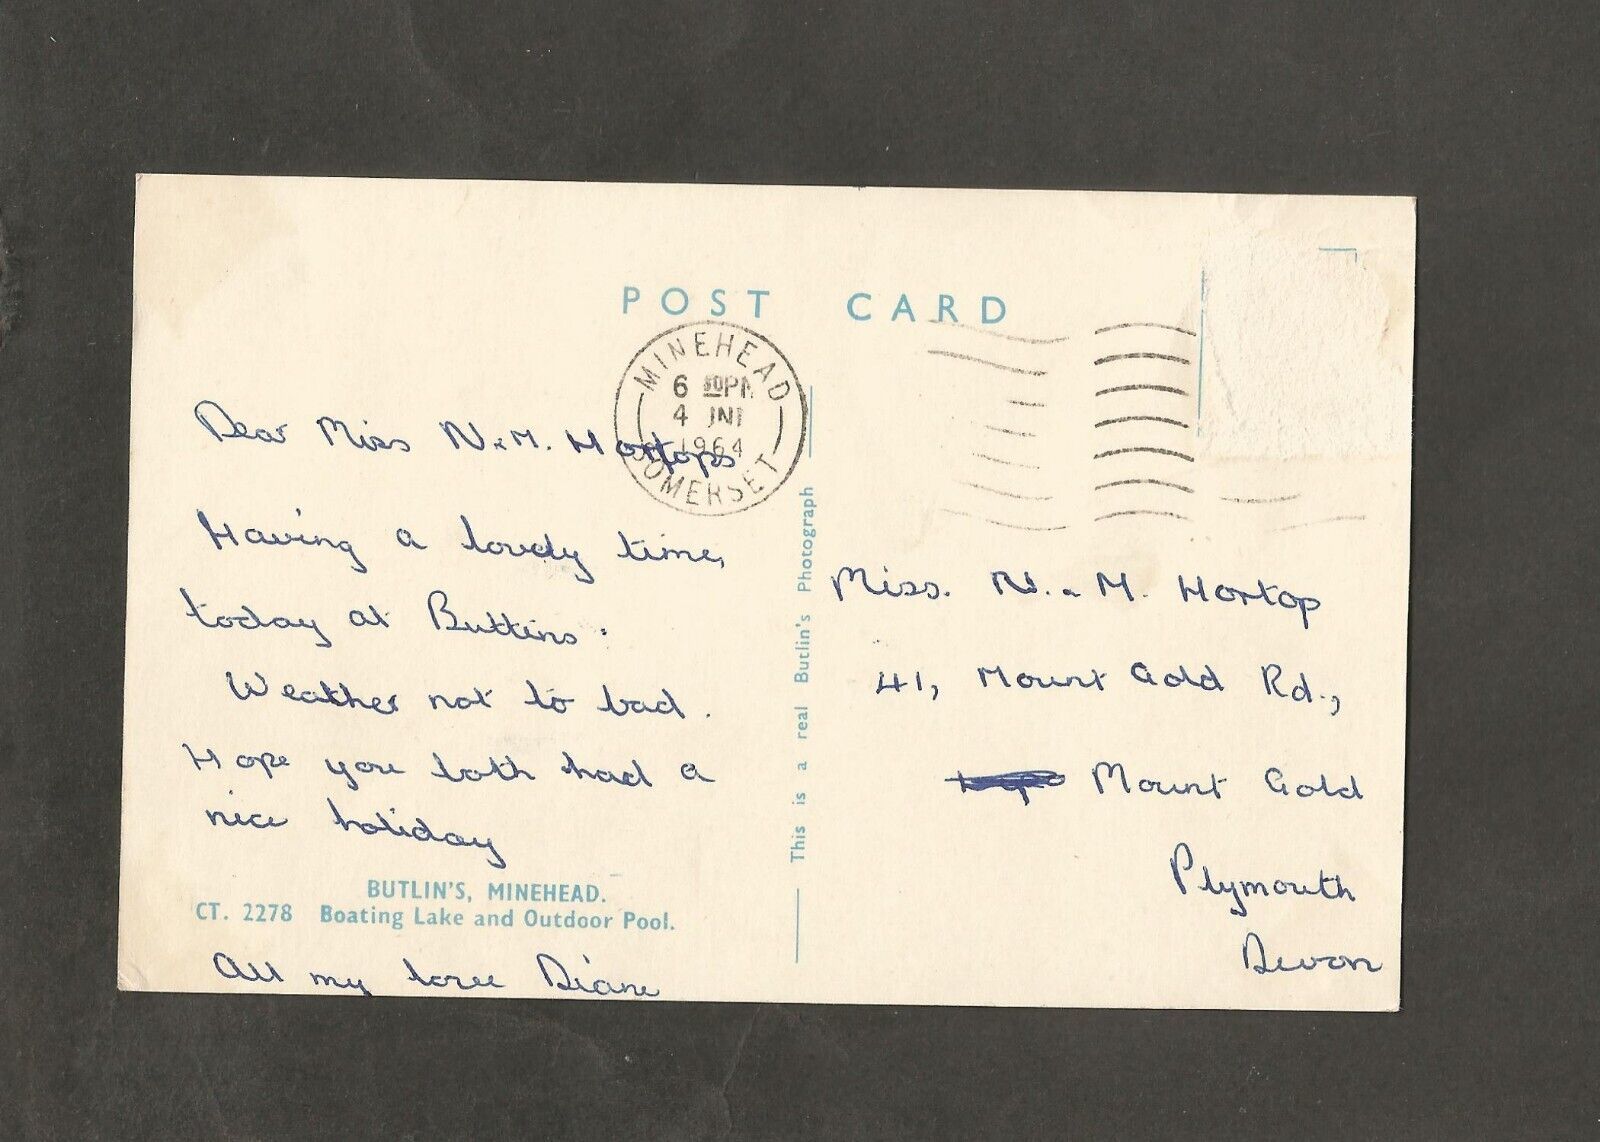 POST CARD
MINEHEAD
6 30PM
4 JNE
1964
SOMERSET
Dear Miss N & M. Hortops
Having a lovely time,
today at Butlins.
Weather not to bad.
Hope you both had a
nice holiday
BUTLIN'S, MINEHEAD.
CT. 2278 Boating Lake and Outdoor Pool.
All my love Diane
This is a real Butlin's Photograph
Miss. N. & M. Hortop
41, Mount Gold Rd.,
Mount Gold
Plymouth
Devon